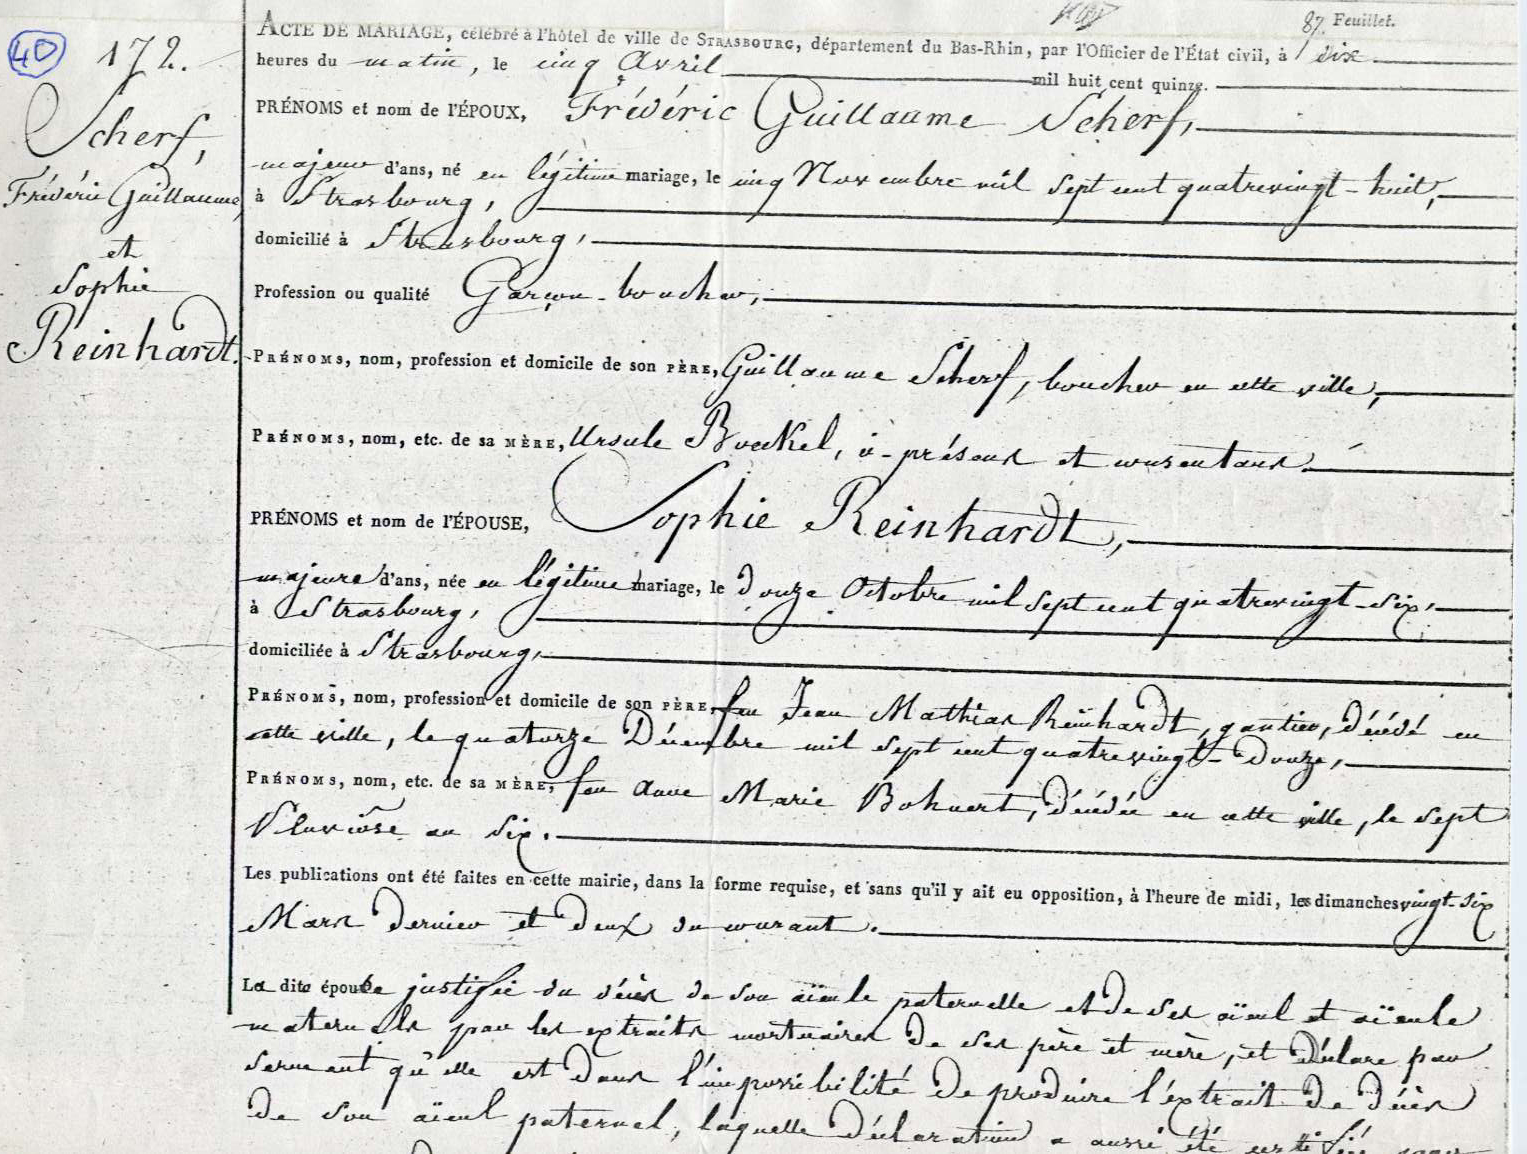 87. Feuillet.
40
172.
Scherf,
Frédéric Guillaume,
et
Sophie
Reinhardt.
ACTE DE MARIAGE, célébré à l'hôtel de ville de STRASBOURG, département du Bas-Rhin, par l'Officier de l'État civil, à dix
heures du matin, le cinq Avril mil huit cent quinze.
PRÉNOMS et nom de l'ÉPOUX, Frédéric Guillaume Scherf,
majeur d'ans, né en légitime mariage, le cinq Novembre mil sept cent quatrevingt-huit,
à Strasbourg,
domicilié à Strasbourg,
Profession ou qualité Garçon-boucher,
PRÉNOMS, nom, profession et domicile de son PÈRE, Guillaume Scherf, boucher en cette ville,
PRÉNOMS, nom, etc. de sa MÈRE, Ursule Boeckel, ci-présens et consentans.
PRÉNOMS et nom de l'ÉPOUSE, Sophie Reinhardt,
majeure d'ans, née en légitime mariage, le douze Octobre mil sept cent quatrevingt-six,
à Strasbourg,
domiciliée à Strasbourg,
PRÉNOMS, nom, profession et domicile de son PÈRE, feu Jean Mathias Reinhardt, gantier, décédé en
cette ville, le quatorze Décembre mil sept cent quatrevingt-douze,
PRÉNOMS, nom, etc. de sa MÈRE, feu Anne Marie Bohnert, décédée en cette ville, le sept
Pluviôse an six.
Les publications ont été faites en cette mairie, dans la forme requise, et sans qu'il y ait eu opposition, à l'heure de midi, les dimanches vingt-six
Mars dernier et deux du courant.
La dite épouse justifie du décès de son aïeule paternelle et de ses aïeul et aïeule
maternels par les extraits mortuaires de ses père et mère, et déclare par
serment qu'elle est dans l'impossibilité de produire l'extrait de décès
de son aïeul paternel, laquelle déclaration a aussi été certifiée sous